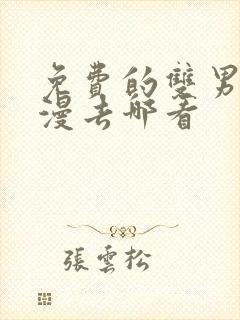 免費的雙男
漫去哪看
張雲松